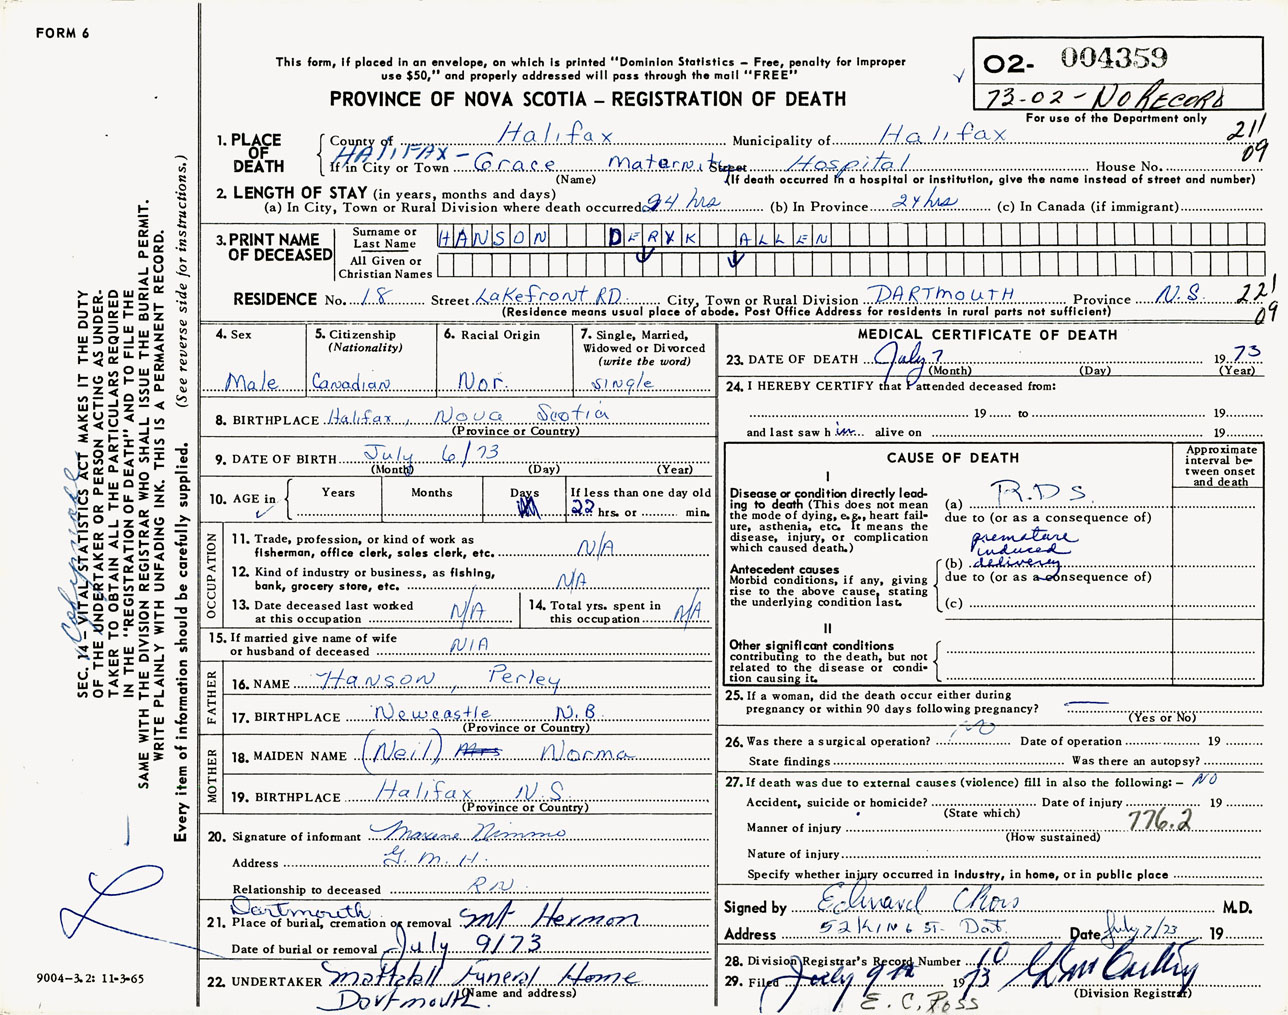 FORM 6
This form, if placed in an envelope, on which is printed "Dominion Statistics – Free, penalty for improper
use $50," and properly addressed will pass through the mail "FREE"
PROVINCE OF NOVA SCOTIA – REGISTRATION OF DEATH
02- 004359
73-02 - NO RECORD
For use of the Department only
211
09
1. PLACE OF DEATH
County of Halifax Municipality of Halifax
HALIFAX -
If in City or Town Grace Maternity Street Hospital House No.
(Name) (If death occurred in a hospital or institution, give the name instead of street and number)
2. LENGTH OF STAY (in years, months and days)
(a) In City, Town or Rural Division where death occurred 24 hrs (b) In Province 24 hrs (c) In Canada (if immigrant)
3. PRINT NAME OF DECEASED
Surname or Last Name HANSON DERYK ALLEN
All Given or Christian Names
RESIDENCE No. 18 Street Lakefront RD. City, Town or Rural Division DARTMOUTH Province N.S. 221
09
(Residence means usual place of abode. Post Office Address for residents in rural parts not sufficient)
4. Sex
Male
5. Citizenship
(Nationality)
Canadian
6. Racial Origin
Nor.
7. Single, Married,
Widowed or Divorced
(write the word)
single
8. BIRTHPLACE Halifax, Nova Scotia
(Province or Country)
9. DATE OF BIRTH July 6/73
(Month) (Day) (Year)
10. AGE in
Years Months Days If less than one day old
22 hrs. or min.
OCCUPATION
11. Trade, profession, or kind of work as
fisherman, office clerk, sales clerk, etc. N/A
12. Kind of industry or business, as fishing,
bank, grocery store, etc. N/A
13. Date deceased last worked
at this occupation N/A
14. Total yrs. spent in
this occupation N/A
15. If married give name of wife
or husband of deceased N/A
FATHER
16. NAME Hanson, Perley
17. BIRTHPLACE Newcastle N.B
(Province or Country)
MOTHER
18. MAIDEN NAME (Neil) Mrs Norma
19. BIRTHPLACE Halifax N.S.
(Province or Country)
20. Signature of informant Maxine Nimmo
Address G. M. H.
Relationship to deceased RN
Dartmouth
21. Place of burial, cremation or removal Mt Hermon
Date of burial or removal July 9/73
22. UNDERTAKER Mattatall Funeral Home
(Name and address)
Dartmouth.
MEDICAL CERTIFICATE OF DEATH
23. DATE OF DEATH July 7 1973
(Month) (Day) (Year)
24. I HEREBY CERTIFY that I attended deceased from:
19 to 19
and last saw h im alive on 19
CAUSE OF DEATH
Approximate
interval be-
tween onset
and death
I
Disease or condition directly lead-
ing to death (This does not mean
the mode of dying, e.g., heart fail-
ure, asthenia, etc. It means the
disease, injury, or complication
which caused death.)
(a) R.D.S.
due to (or as a consequence of)
premature
induced
(b) delivery
due to (or as a consequence of)
(c)
Antecedent causes
Morbid conditions, if any, giving
rise to the above cause, stating
the underlying condition last.
II
Other significant conditions
contributing to the death, but not
related to the disease or condi-
tion causing it.
25. If a woman, did the death occur either during
pregnancy or within 90 days following pregnancy?
(Yes or No)
26. Was there a surgical operation? no Date of operation 19
State findings Was there an autopsy?
27. If death was due to external causes (violence) fill in also the following: – NO
Accident, suicide or homicide? Date of injury 19
(State which)
Manner of injury 776.2
(How sustained)
Nature of injury
Specify whether injury occurred in industry, in home, or in public place
Signed by Edward M.D.
Address 52 KING ST. Dart. Date July 7/73 19
28. Division Registrar's Record Number 10
29. Filed July 9th 1973
(Division Registrar)
E. C. Ross
SEC. 14 – VITAL STATISTICS ACT MAKES IT THE DUTY
OF THE UNDERTAKER OR PERSON ACTING AS UNDER-
TAKER TO OBTAIN ALL THE PARTICULARS REQUIRED
IN THE "REGISTRATION OF DEATH" AND TO FILE THE
SAME WITH THE DIVISION REGISTRAR WHO SHALL ISSUE THE BURIAL PERMIT.
WRITE PLAINLY WITH UNFADING INK. THIS IS A PERMANENT RECORD.
Every item of information should be carefully supplied. (See reverse side for instructions.)
9004-3.2: 11-3-65